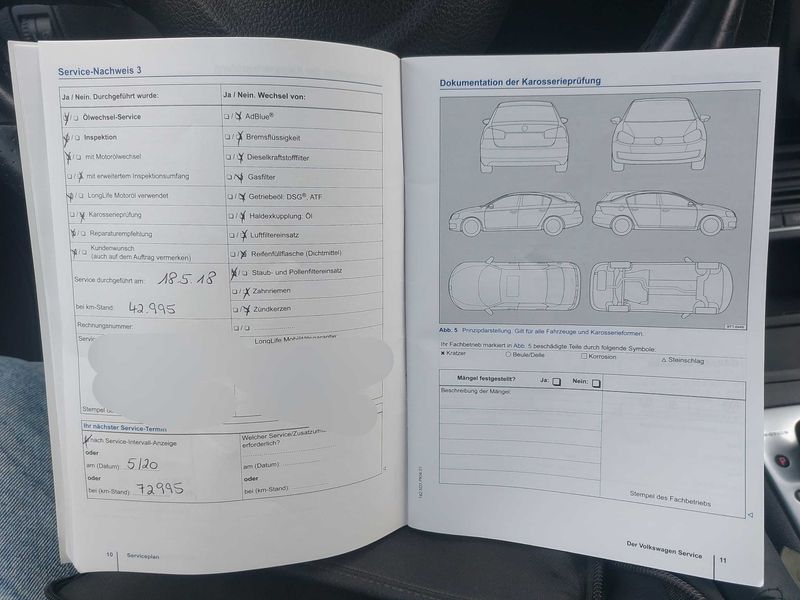 Service-Nachweis 3
Ja / Nein. Durchgeführt wurde:
Ölwechsel-Service
Inspektion
mit Motorölwechsel
mit erweitertem Inspektionsumfang
LongLife Motoröl verwendet
Karosserieprüfung
Reparaturempfehlung
Kundenwunsch
(auch auf dem Auftrag vermerken)
Service durchgeführt am: 18.5.18
bei km-Stand: 42.995
Rechnungsnummer:
Ja / Nein. Wechsel von:
AdBlue®
Bremsflüssigkeit
Dieselkraftstofffilter
Gasfilter
Getriebeöl: DSG®, ATF
Haldexkupplung: Öl
Luftfiltereinsatz
Reifenfüllflasche (Dichtmittel)
Staub- und Pollenfiltereinsatz
Zahnriemen
Zündkerzen
Stempel
Ihr nächster Service-Termin
nach Service-Intervall-Anzeige
oder
am (Datum): 5/20
oder
bei (km-Stand): 72995
Welcher
erforderlich?
am (Datum):
oder
bei (km-Stand):
10 Serviceplan
Dokumentation der Karosserieprüfung
Abb. 5 Prinzipdarstellung: Gilt für alle Fahrzeuge und Karosserieformen.
Ihr Fachbetrieb markiert in Abb. 5 beschädigte Teile durch folgende Symbole:
× Kratzer ○ Beule/Delle □ Korrosion △ Steinschlag
Mängel festgestellt? Ja: Nein:
Beschreibung der Mängel:
Stempel des Fachbetriebs
Der Volkswagen Service 11